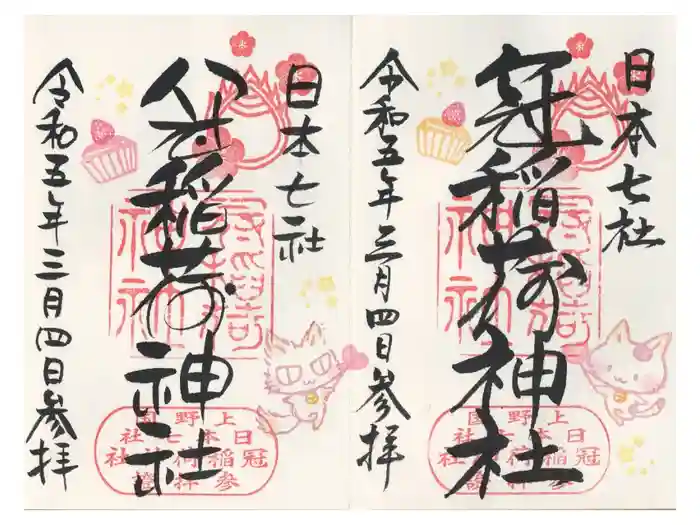 日本七社
冠稲荷神社
令和五年三月四日参拝
上野國
日本七社
冠稲荷神社
日本七社
冠稲荷神社
令和五年三月四日参拝
上野國
日本七社
冠稲荷神社